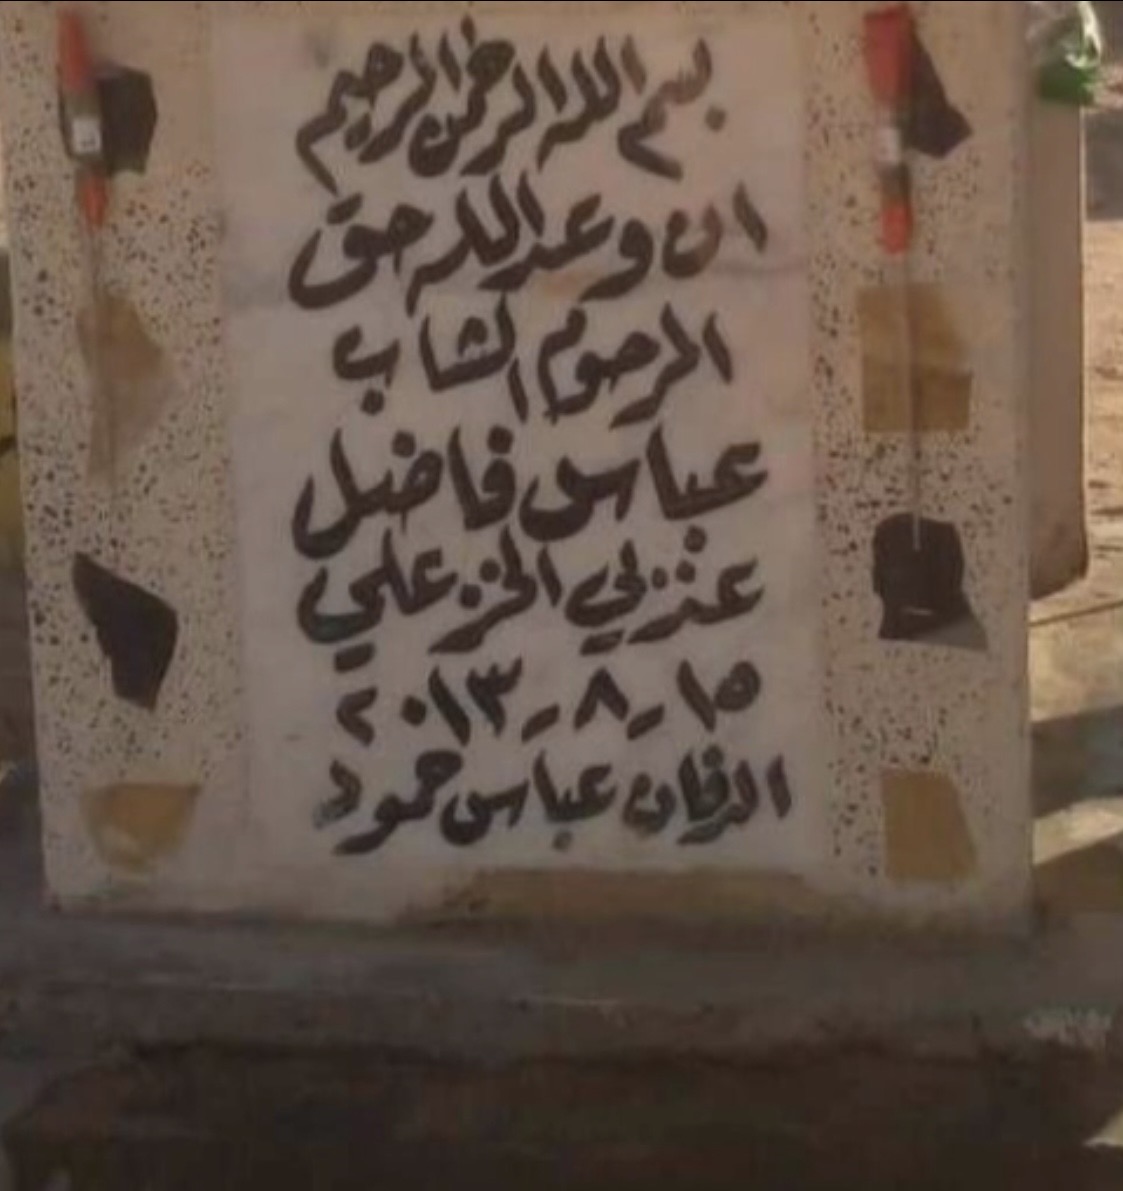 بسم الله الرحمن الرحيم
ان وعد الله حق
المرحوم الشاب
عباس فاضل
عنزبي الخزعلي
١٥-٨-٢٠١٣
الدفان عباس حمود